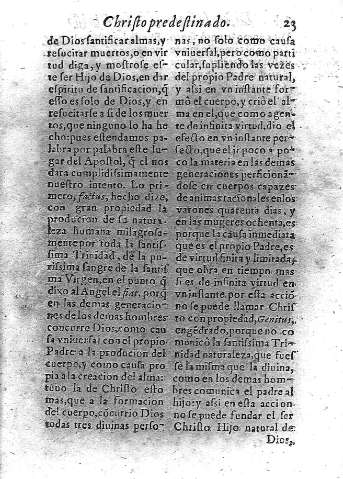 Christo predestinado. 23
de Dios santificar almas, y
resucitar muertos, o en vir
tud diga, y mostrose es-
te ser Hijo de Dios, en dar
espiritu de santificacion, q̃
esso es solo de Dios, y en
resucitarse a si de los muer
tos, que ninguno lo ha he
cho: pues estendamos pa-
labra por palabra este lu-
gar del Apostol, q̃ el nos
dara cumplidissimamente
nuestro intento. Lo pri-
mero, factus, hecho dize,
con gran propiedad la
producion de su natura-
leza humana milagrosa-
mente por toda la santis-
sima Trinidad, de la pu-
rissima sangre de la santis
ma Virgen, en el punto q̃
dixo al Angel el fiat, porq̃
en las demas generacio-
nes de los demas hombres
concurre Dios, como cau
sa vniuersal con el propio
Padre a la producion del
cuerpo, y como causa pro
pia a la creacion del alma:
tuuo la de Christo esto
mas, que a la formacion
del cuerpo, cõcurrio Dios
todas tres diuinas perso-
nas, no solo como causa
vniuersal, pero como parti
cular, supliendo las vezes
del propio Padre natural,
y assi en vn instante for-
mò el cuerpo, y criò el al-
ma en el, que como agen-
te de infinita virtud, dio el
efecto en vn instante per-
fecto, que el ir poco a po-
co la materia en las demas
generaciones perficionã-
dose en cuerpos capazes
de animas racionales en los
varones quarenta dias, y
en las mugeres ochenta, es
porque la causa inmediata
que es el propio Padre, es
de virtud finita y limitada,
que obra en tiempo mas
si es de infinita virtud en
vn instante, por esta acciõ
no se puede llamar Chris
to con propiedad, Genitus,
engẽdrado, porque no co
municò la santissima Tri-
nidad naturaleza, que fues
se la misma que la diuina,
como en los demas hom-
bres comunica el padre al
hijo: y assi en esta accion
no se puede fundar el ser
Christo Hijo natural de
Dios,